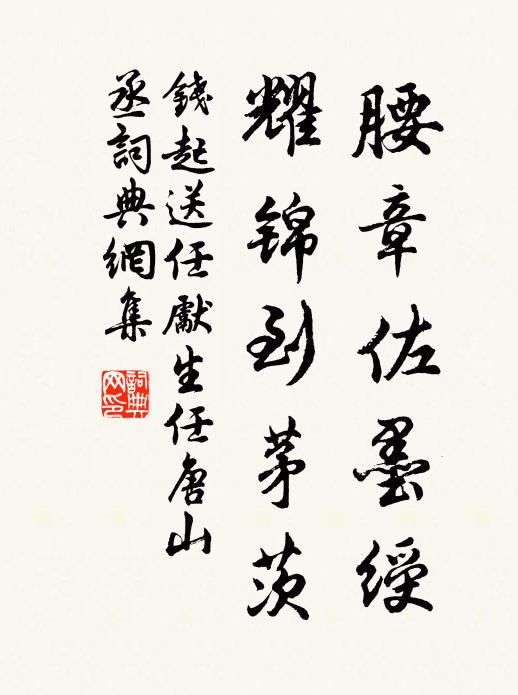 腰章佐墨綬
耀錦到茅茨
錢起送任獻生任唐山
丞詞典網集
詞典网印